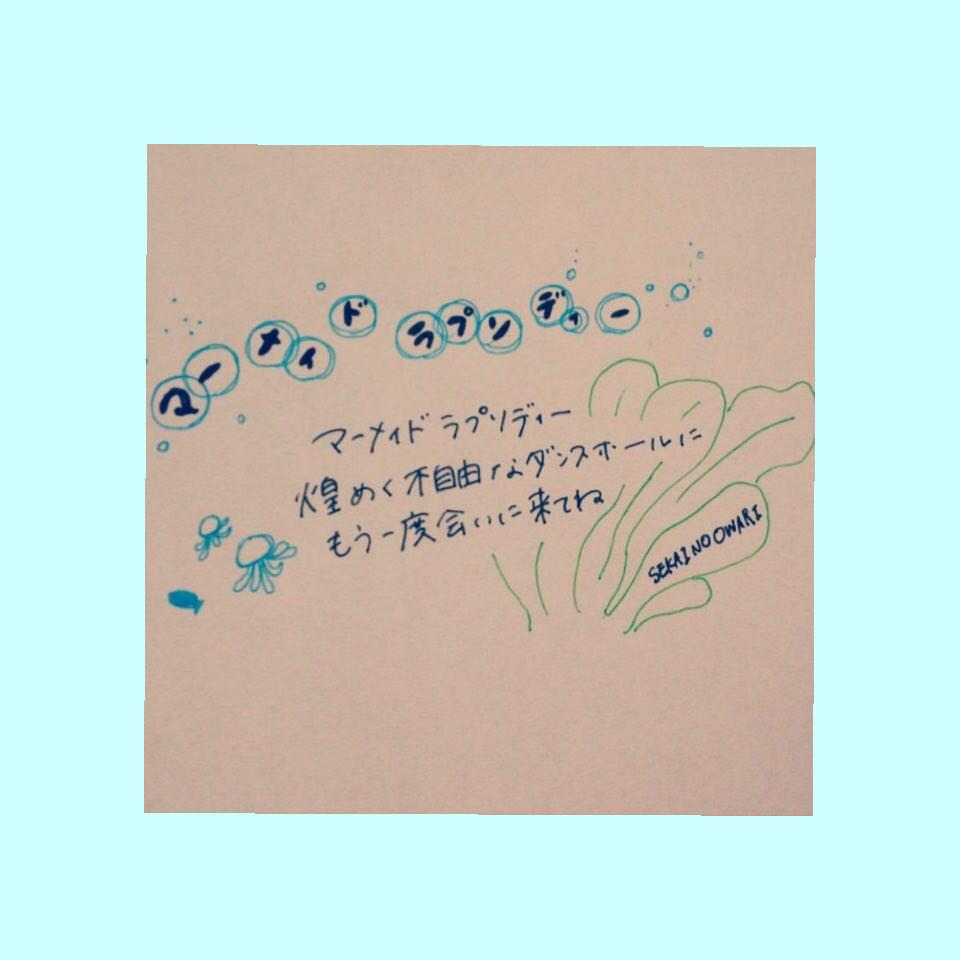 マーメイド ラプソディー
マーメイド ラプソディー
煌めく不自由なダンスホールに
もう一度会いに来てね
SEKAI NO OWARI